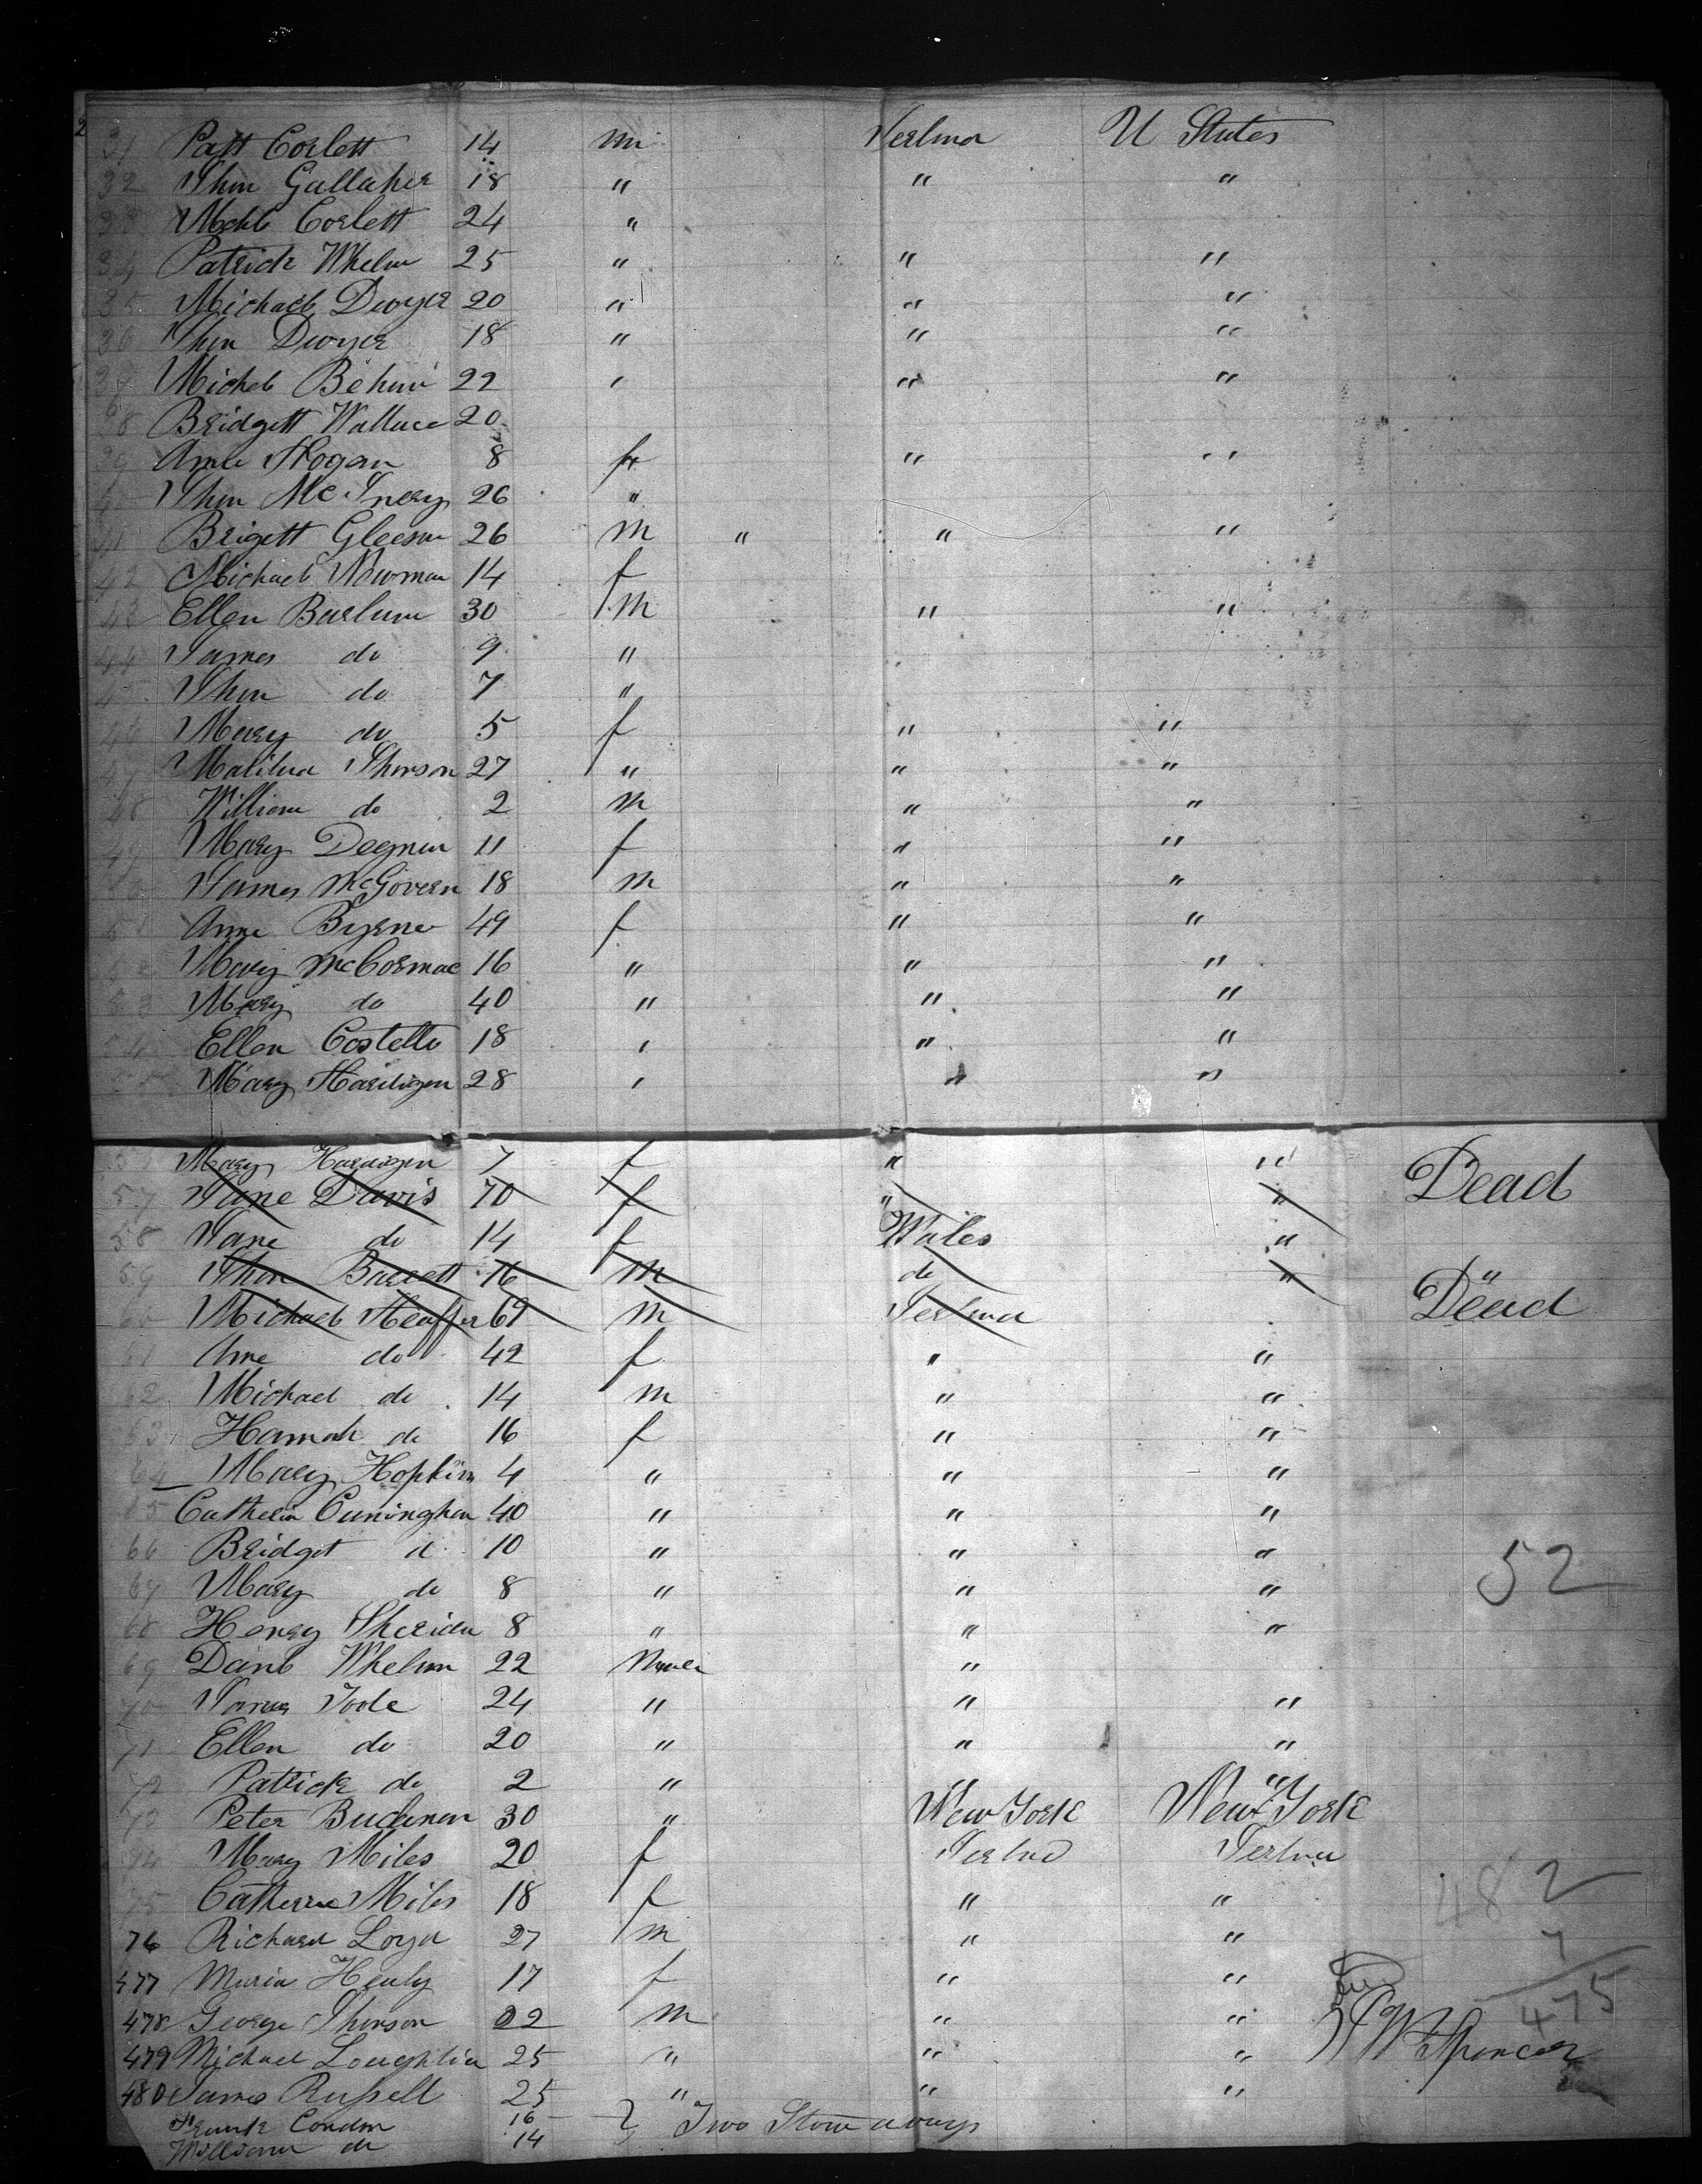 2
31 Patt Corlett 14 m Ierlind U States
32 Jhon Gallaher 18 " " "
33 Mchl Corlett 24 "
34 Patrick Whelan 25 " " "
35 Michael Dwyer 20 " " "
36 Jhon Dwyer 18 " " "
37 Michel Behan 22 " " "
38 Bridgett Wallace 20
39 Anne Hogan 8 f " "
40 Jhon Mc Inery 26 "
41 Brigett Gleeson 26 m " " "
42 Michael Newman 14 f
43 Ellen Barlum 30 m " "
44 James do 9 "
45 Jhon do 7 "
46 Mary do 5 f " "
47 Matilda Jhonson 27 " " "
48 William do 2 m " "
49 Mary Deegnan 11 f " "
50 James McGovern 18 m " "
51 Anne Byrne 49 f " "
52 Mary McCormac 16 " " "
53 Mary do 40 " " "
54 Ellen Costello 18 " " "
55 Mary Hardigen 28 " " "
56 Mary Hardigen 7 f " "
57 Jane Davis 70 f " " Dead
58 Jane do 14 f Wales "
59 Jhon Barrett 76 m do " "
60 Michael Heaffer 69 m Ierland Dead
61 Ane do 42 f " "
62 Michael do 14 m " "
63 Hannah do 16 f " "
64 Mary Hopkins 4 " " "
65 Cathein Cuningham 40 " " "
66 Bridget d 10 " " " 52
67 Mary do 8 " " "
68 Henry Sheridan 8 " " "
69 Danl Whelan 22 "
70 James Toole 24 " " "
71 Ellen do 20 " " "
72 Patrick do 2 " " "
73 Peter Buckanan 30 " New York New York
74 Mary Miles 20 f Ierland Ierland
75 Catherine Miles 18 f " " 482
76 Richard Loyd 27 m " " 7
477 Maria Healy 17 f " " 475
478 George Jhonson 22 m " "
479 Michael Loughlin 25 " " " Spencer
480 James Russell 25 " " "
Frank Condon 16 } Two Stowaways
William do 14